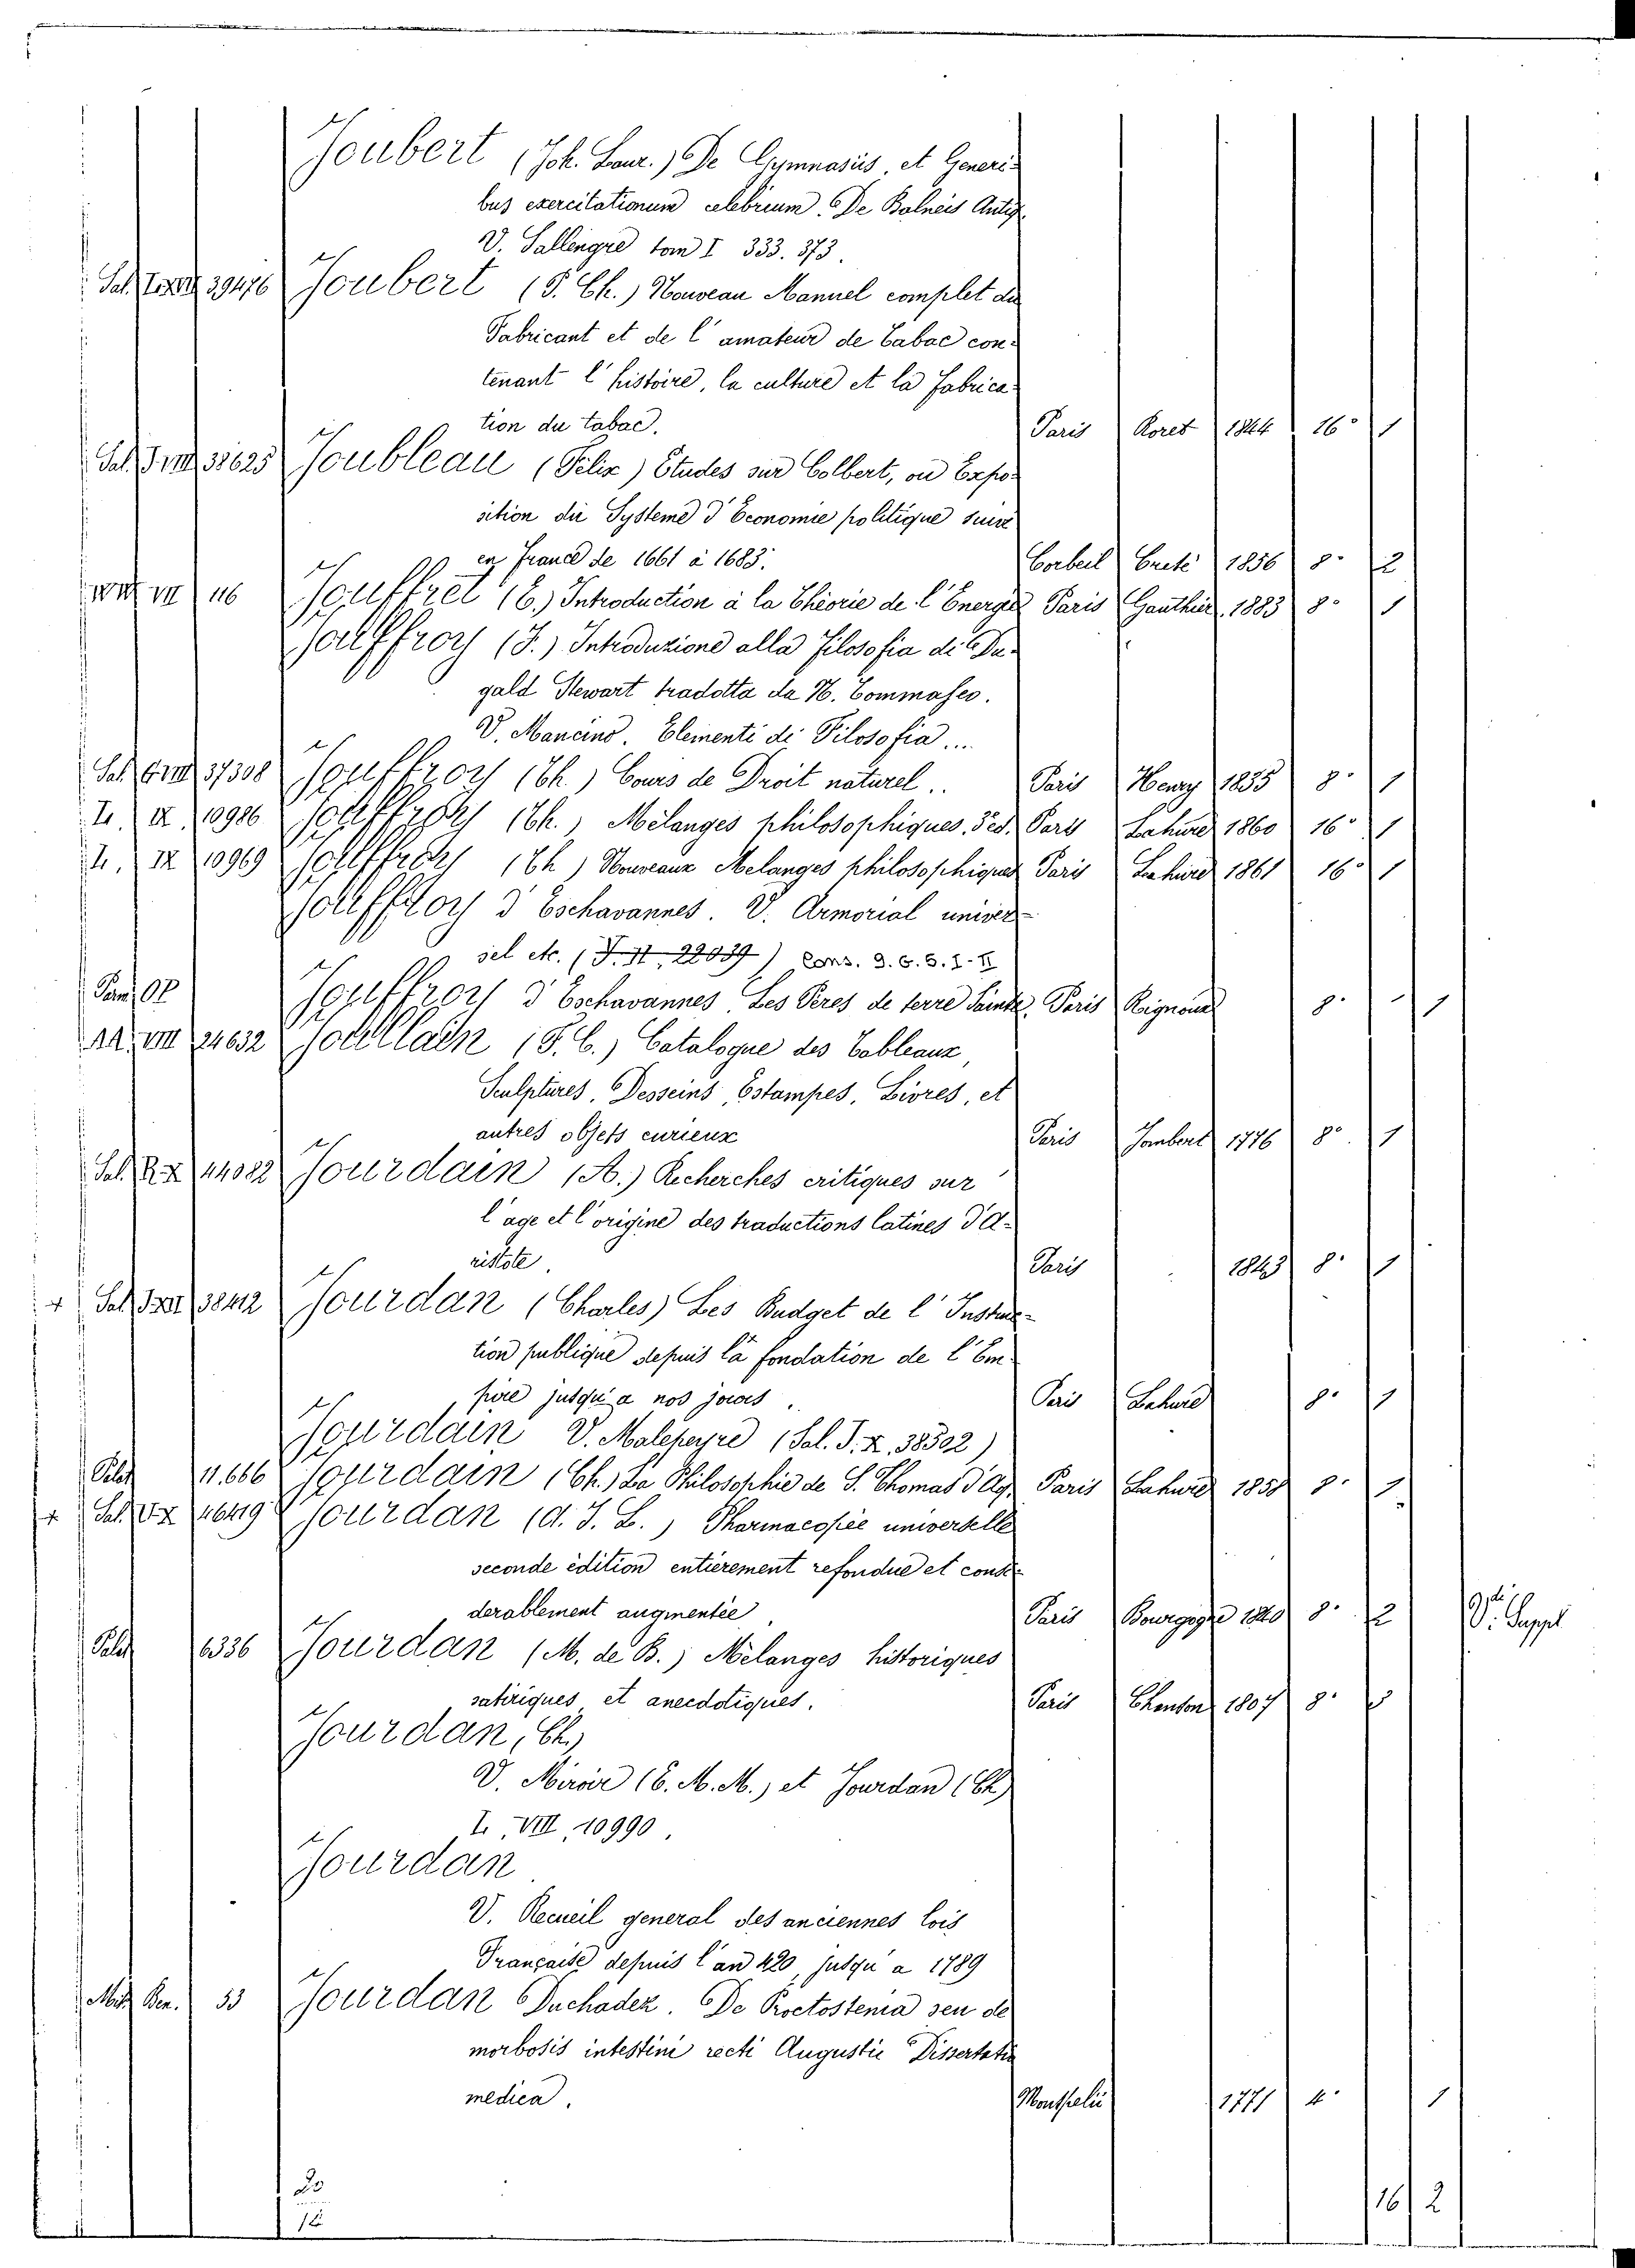 Joubert (Joh. Laur.) De Gymnasiis, et Generi-
bus exercitationum celebrium. De Balneis Antiq.
V. Sallengre tom I 333. 373.
Sal. 39476 Joubert (P. Ch.) Nouveau Manuel complet du
Fabricant et de l'amateur de Tabac con-
tenant l'histoire, la culture et la fabrica-
tion du tabac. Paris Roret 1844 16° 1
Sal. 38625 Joubleau (Felix) Études sur Colbert, ou Expo-
sition du Systeme d'Economie politique suivi
en France de 1661 à 1683. Corbeil Creté 1856 8° 2
VII 116 Jouffret (E.) Introduction à la Théorie de l'Energie Paris Gauthier 1883 8° 1
Jouffroy (T.) Introduzione alla Filosofia di Du-
gald Stewart tradotta da N. Tommaseo.
V. Mancino. Elementi di Filosofia...
Sal. 37308 Jouffroy (Th.) Cours de Droit naturel.. Paris Henry 1835 8° 1
I. IX 10986 Jouffroy (Th.) Mélanges philosophiques, 3 ed. Paris Lahure 1860 16° 1
I. IX 10969 Jouffroy (Th) Nouveaux Melanges philosophiques Paris Lahure 1861 16° 1
Jouffroy d'Eschavannes. V. Armorial univer-
sel etc. (T. II, 22039) Cons. D. G. S. I-II
Jouffroy d'Eschavannes Les Peres de terre Sainte. Paris 8° 1
AA. VIII 24632 Joullain (F. C.) Catalogue des Tableaux,
Sculptures, Desseins, Estampes, Livres, et
autres objets curieux Paris Jombert 1776 8° 1
Sal. R. X 44082 Jourdain (A.) Recherches critiques sur
l'age et l'origine des traductions latines d'A-
ristote. Paris 1843 8° 1
+ Sal. 38412 Jourdan (Charles) Les Budget de l'Instruc-
tion publique depuis la fondation de l'Em-
pire jusqu'a nos jours. Paris Lahure 8° 1
Jourdain V. Malepeyre (Sal. T. X, 38502)
11.666 Jourdain (Ch.) La Philosophie de S. Thomas d'Aq. Paris Lahure 1858 8° 2
+ Sal. V. X 46419 Jourdan (A. J. L.) Pharmacopée universelle
seconde édition entièrement refondue et consi-
derablement augmentée Paris Bourgogne 1840 8° 2 V. Suppl
6336 Jourdan (M. de B.) Mélanges historiques
satiriques et anecdotiques. Paris Chanson 1807 8°
Jourdan, Ch.)
V. Miroir (E. M. M.) et Jourdan (Ch)
I. VIII, 10990.
Jourdan
V. Recueil general des anciennes lois
Française depuis l'an 420, jusqu'a 1789
Ben. 53 Jourdan Duchadez. De Proctostenia seu de
morbosis intestini recti Augustiis Dissertatio
medica. Monspelii 1771 4° 1
20
12
16 2